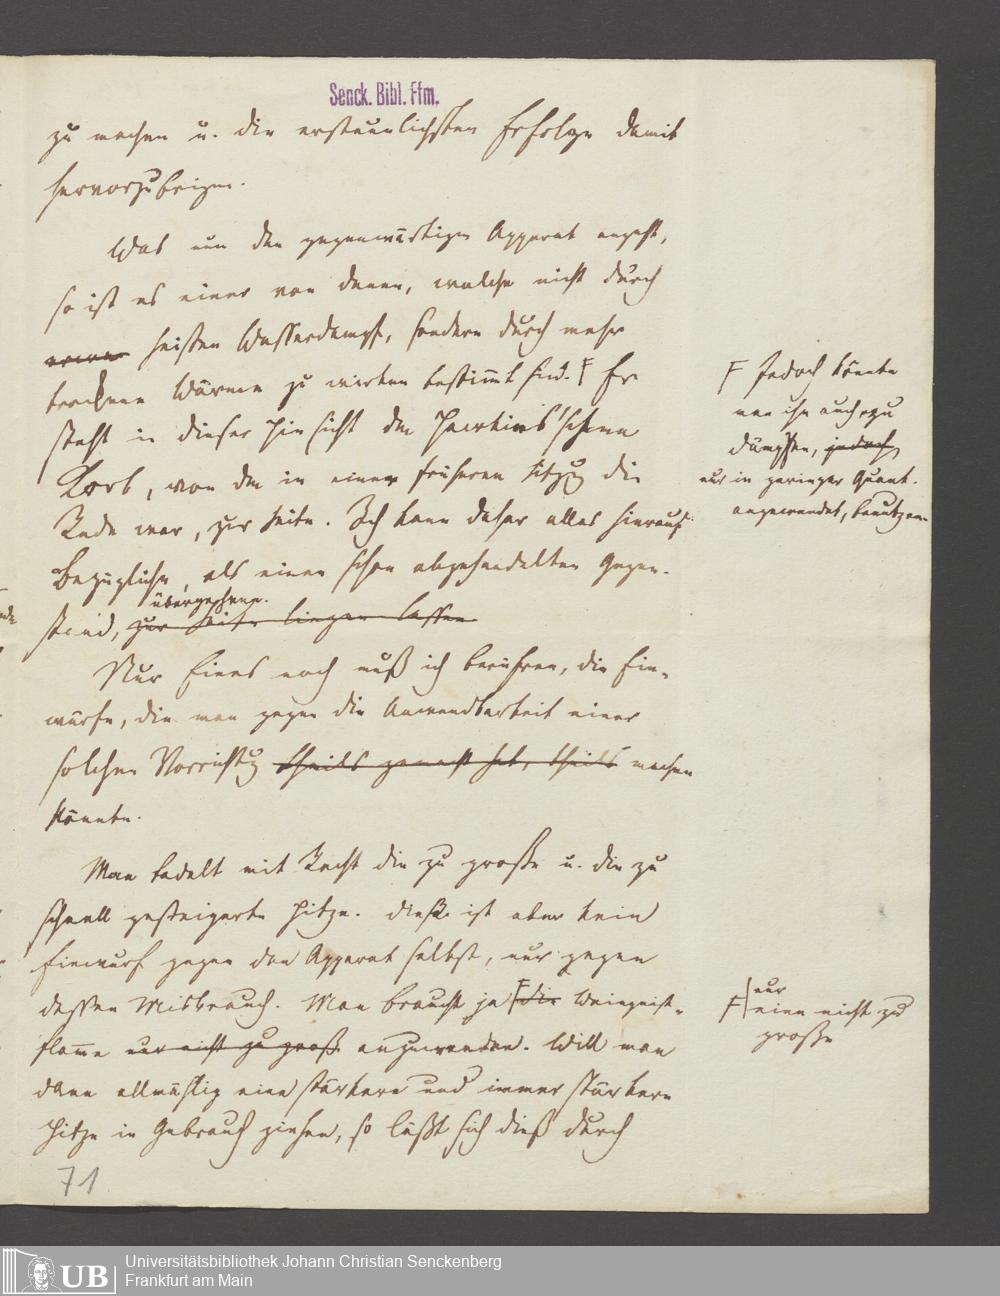 Senck. Bibl. Ffm.
zu machen u. die erstaunlichsten Erfolge damit
hervorzubringen.
Was nun den gegenwärtigen Apparat angeht,
so ist es einer von denen, welche nicht durch
heißen Wasserdampf, sondern durch mehr
trockene Wärme zu wirken bestimmt sind. F Er
steht in dieser Hinsicht dem
Korb, von dem in einer früheren Sitzung die
Rede war, zur Seite. Ich kann daher alles hierauf
Bezügliche, als einen schon abgehandelten Gegen-
stand, zur Seite liegen lassen
übergehen.
Nur Eines noch muß ich berühren, die Ein-
würfe, die man gegen die Anwendbarkeit einer
solchen Vorrichtung theils gemacht hat, theils machen
könnte.
Man tadelt mit Recht die zu große u. die zu
schnell gesteigerte Hitze. Dieß ist aber kein
Einwurf gegen den Apparat selbst, nur gegen
dessen Misbrauch. Man braucht ja F die Weingeist-
flamme nur nicht zu groß anzuwenden. Will man
dann allmählig eine stärkere und immer stärkere
Hitze in Gebrauch ziehen, so läßt sich dieß durch
F Jedoch könnte
man ihn auch zu
Dämpfen, jedoch
nur in geringer Quant.
angewendet, benutzen.
F nur
eine nicht zu
große
71
UB
Universitätsbibliothek Johann Christian Senckenberg
Frankfurt am Main